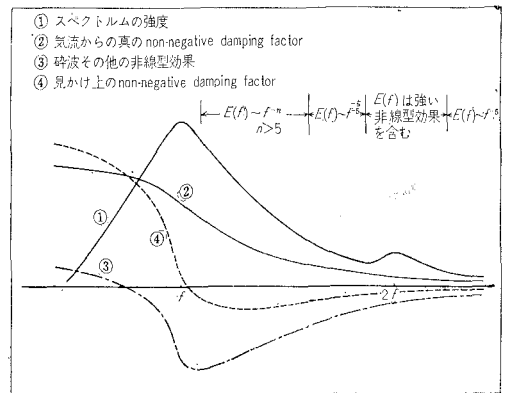 ① スペクトルムの強度
② 気流からの真のnon-negative damping factor
③ 砕波その他の非線型効果
④ 見かけ上のnon-negative damping factor
E(f)~f⁻ⁿ
n>5
E(f)~f⁻⁵
E(f)は強い
非線型効果
を含む
E(f)~f⁻⁵
①
②
③
④
f
2f